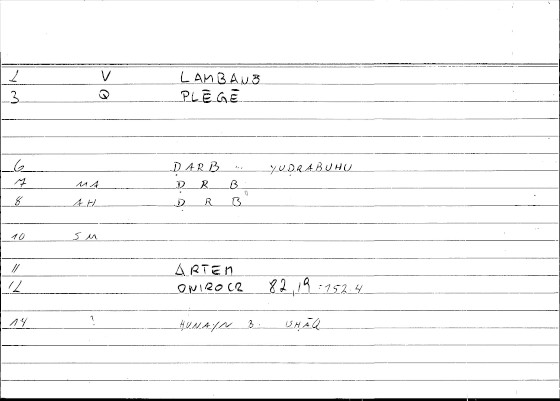 2 V LAMBANŌ
3 Q PLĒGĒ
6 ḌARB .. YUḌRABUHU
7 MA Ḍ R B
8 AH Ḍ R B
10 SM
11 ARTEM
12 ONIROCR 82,19 : 152.4
14 ? HUNAYN B.